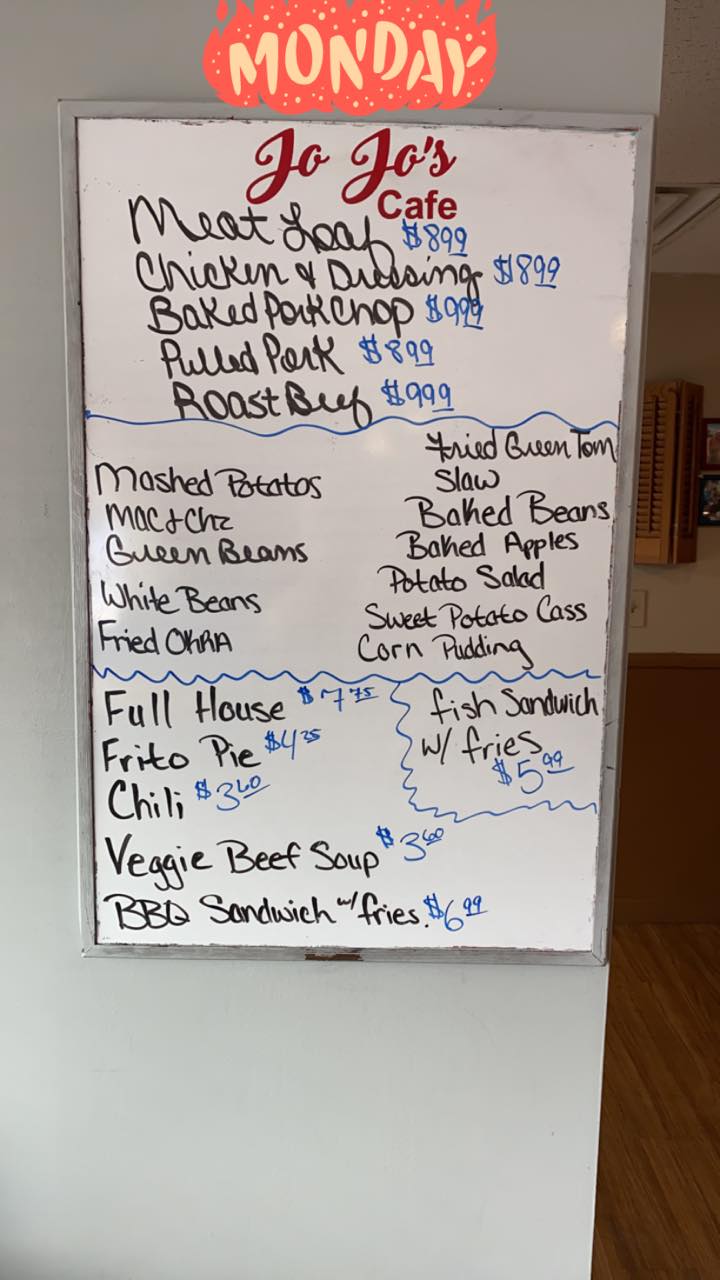 MONDAY
Jo Jo's
Cafe
Meat Loaf $899
Chicken & Dressing $899
Baked Pork Chop $999
Pulled Pork $899
Roast Beef $999
Mashed Potatos
Mac & Chz
Green Beans
White Beans
Fried OKRA
Fried Green Tom
Slaw
Baked Beans
Baked Apples
Potato Salad
Sweet Potato Cass
Corn Pudding
Full House $7 75
Frito Pie $4 25
Chili $3 60
fish Sandwich
w/ fries
$5 99
Veggie Beef Soup $3 60
BBQ Sandwich w/ fries. $6 99